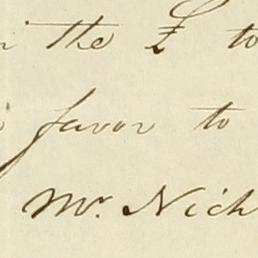 the £ to
favor to
Mr. Nich